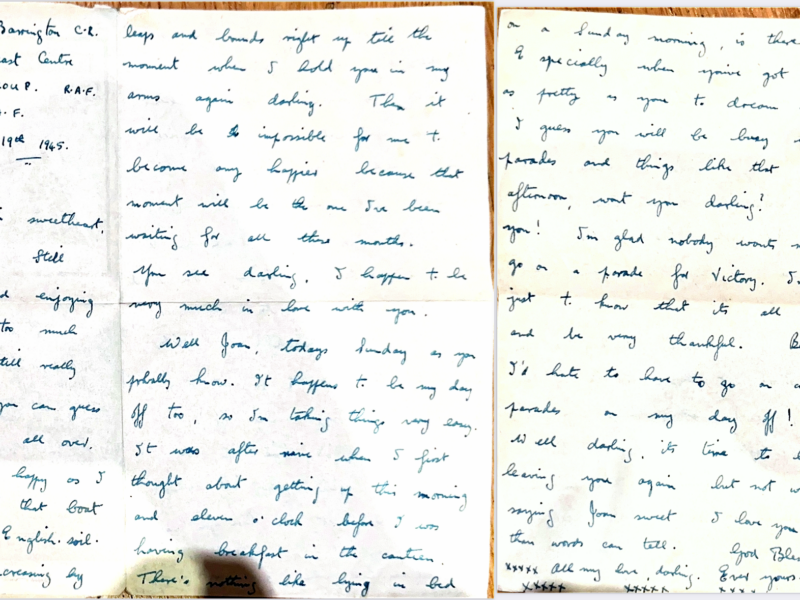 Barrington C.R.
East Centre
R.A.F.
19th 1945.
sweetheart,
Still
enjoying
too much
still really
you can guess
all over.
happy as I
that boat
English soil.
increasing by
leaps and bounds right up till the
moment when I hold you in my
arms again darling. Then it
will be impossible for me t.
become any happier because that
moment will be the one I've been
waiting for all these months.
You see darling, I happen t. be
very much in love with you.
Well Joan, todays Sunday as you
probally know. It happens t. be my day
off too, so I'm taking things very easy.
It was after nine when I first
thought about getting up this morning
and eleven o'clock before I was
having breakfast in the canteen.
There's nothing like lying in bed
on a Sunday morning, is there
Especially when you've got
as pretty as you to dream
I guess you will be busy
parades and things like that
afternoon, wont you darling?
you! I'm glad nobody wants
go on a parade for Victory.
just t. know that its all
and be very thankful.
I'd hate to have to go on
parades on my day off!
Well darling, its time to
leaving you again but not
saying Joan sweet I love you
than words can tell. God Bless
xxxxx All my love darling. Ever yours
xxxxx xxxxx xxxx